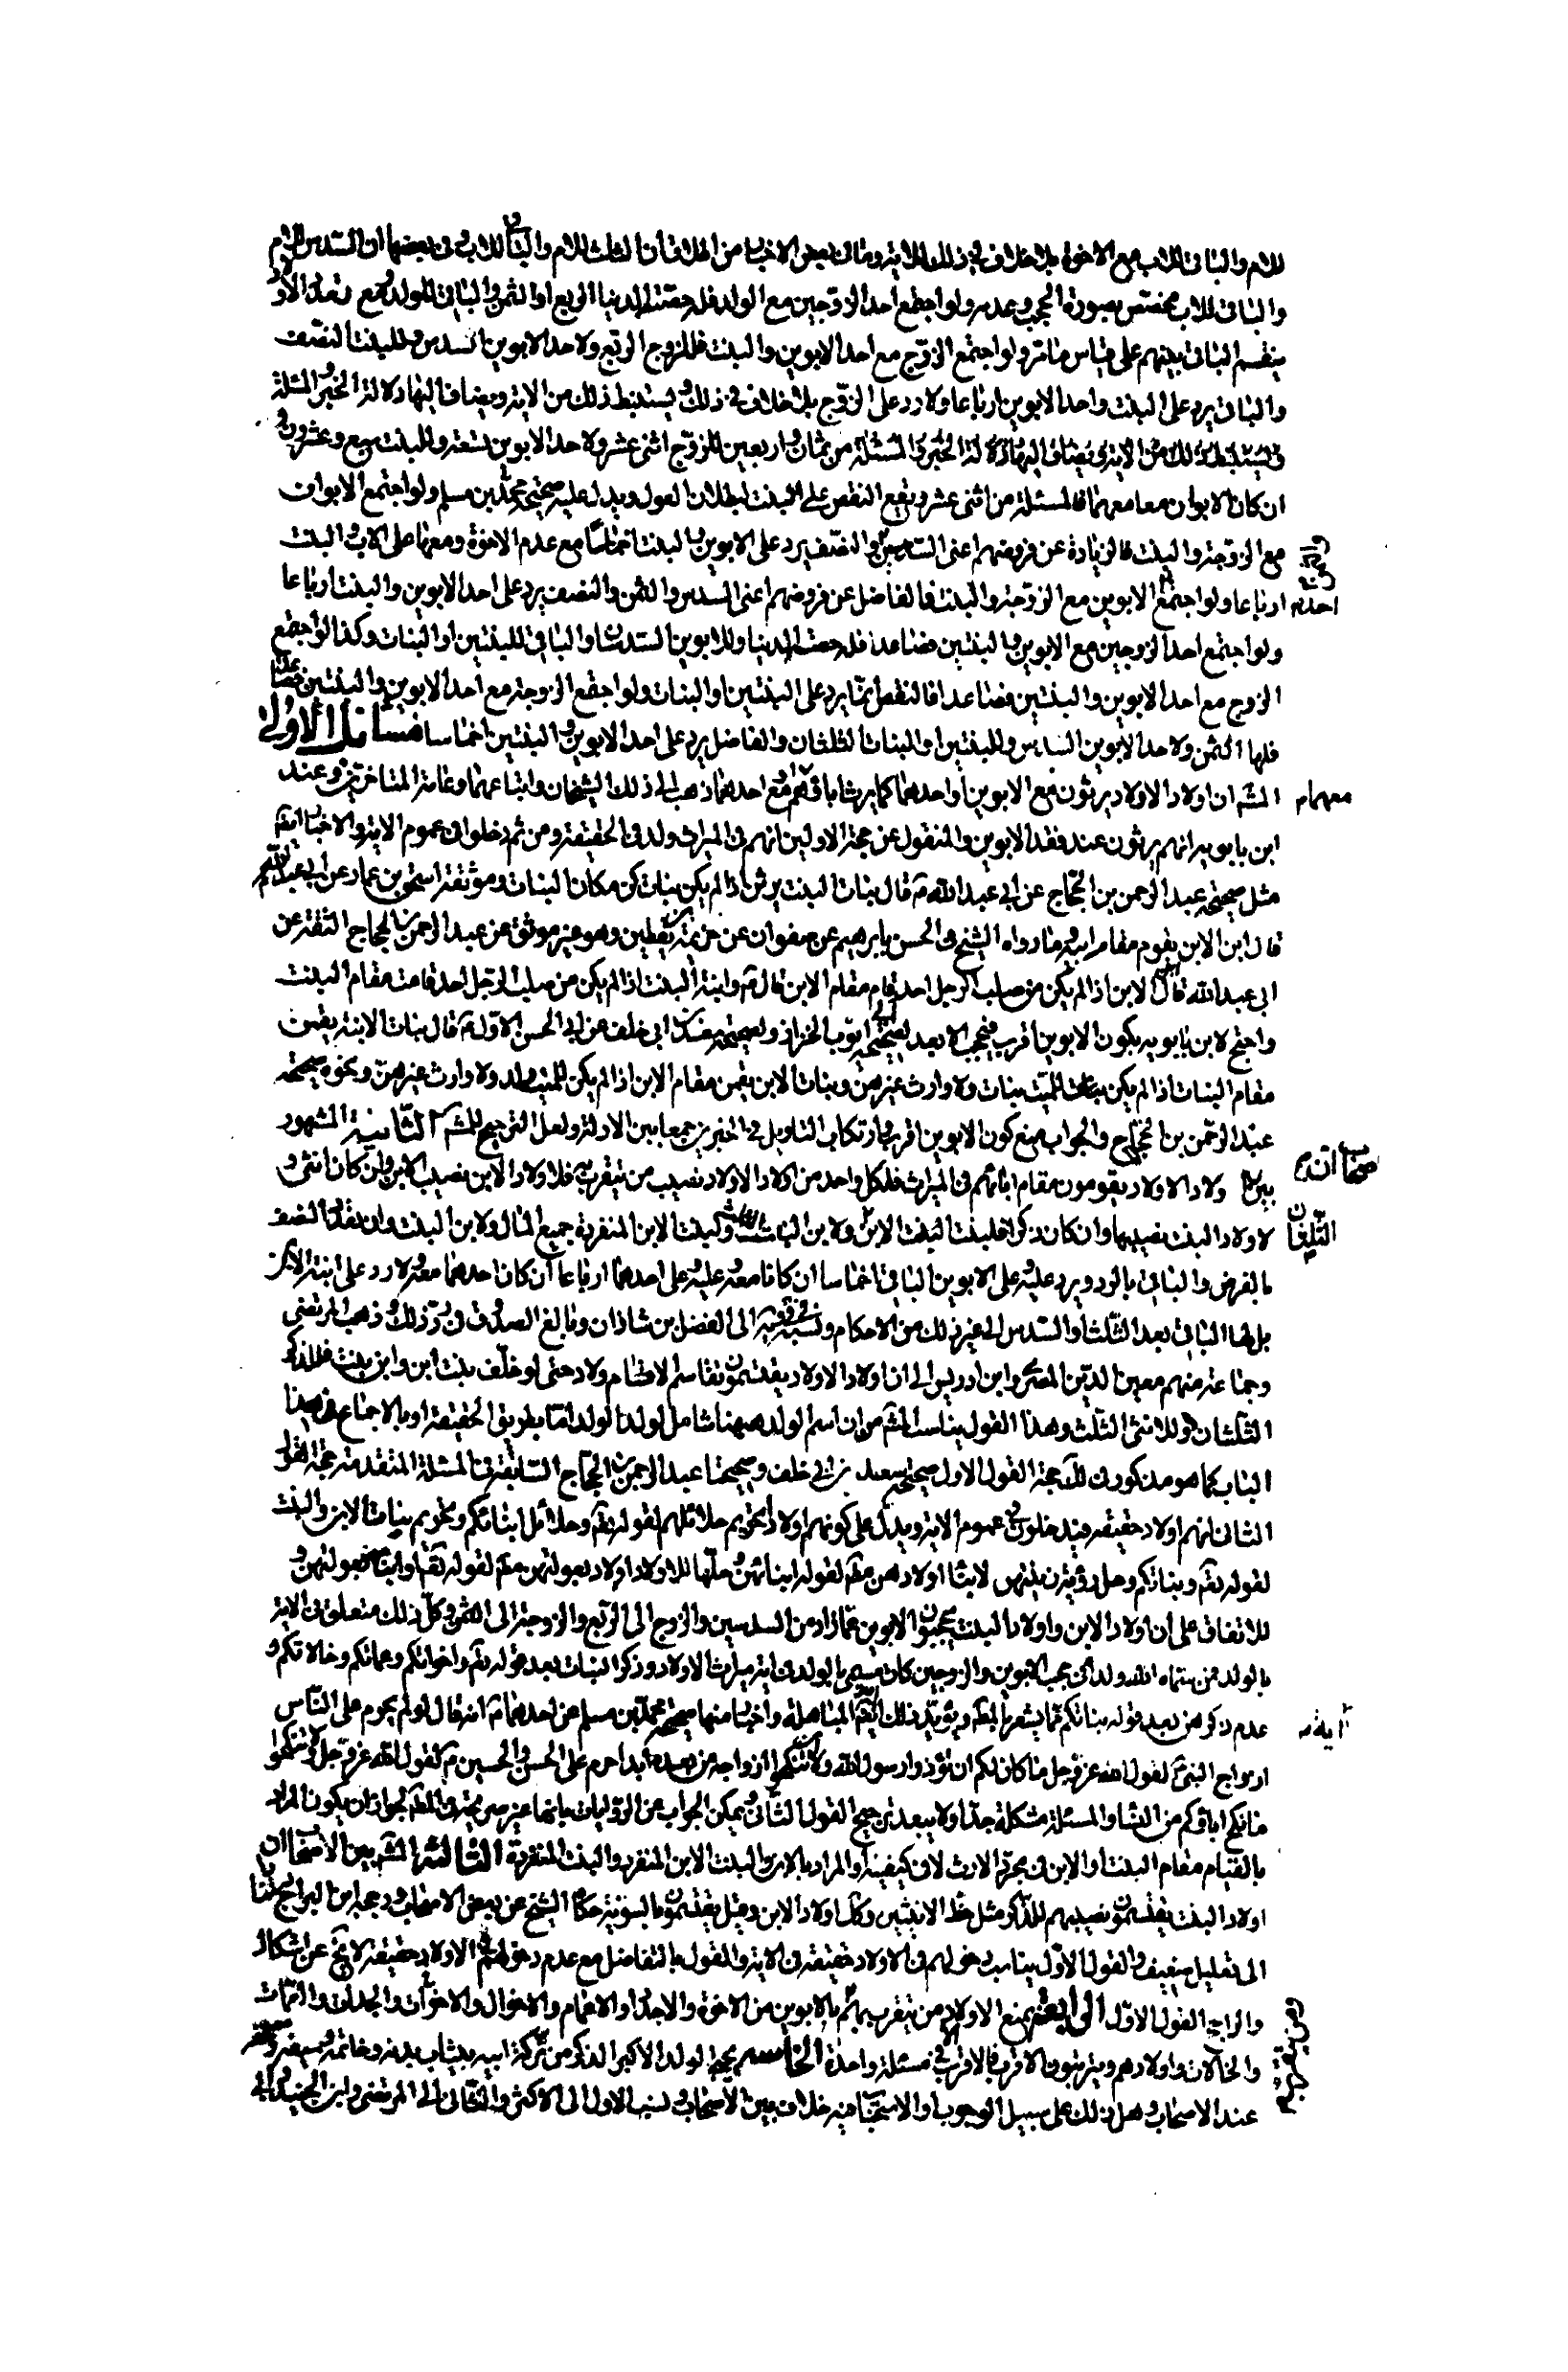 للام والباقى للاب مع الاخوة بلا خلاف فى ذلك للاية وما فى بعض الاخبار من اطلاق ان الثلث للام والباقى للاب وفى بعضها ان السدس للام
والباقى للاب مختص بصورة الحجب وعدمه ولو اجتمع احد الزوجين مع الولد فله حصته الدنيا الربع او الثمن والباقى للولد ومع تعدد الاولاد
ينقسم الباقى بينهم على قياس ما مر ولو اجتمع الزوج مع احد الابوين والبنت فللزوج الربع ولاحد الابوين السدس وللبنت النصف
والباقى يرد على البنت واحد الابوين ارباعا ولا رد على الزوج بلا خلاف فى ذلك ويستنبط ذلك من الاية ويضاف اليها دلالة الخبر والمسئلة
من ثمان واربعين للزوج اثنى عشر ولاحد الابوين تسعة وللبنت سبع وعشرون و
ان كان الابوان معا معهما فالمسئلة من اثنى عشر ويقع النقص على البنت لبطلان العول ويدل عليه صحيحة محمد بن مسلم ولو اجتمع الابوان
مع الزوجة والبنت فالزيادة عن فروضهم اعنى السدسين والنصف يرد على الابوين والبنت اخماسا مع عدم الاخوة ومعها على الاب والبنت
ارباعا ولو اجتمع احد الابوين مع الزوجة والبنت فالفاضل عن فروضهم اعنى السدس والثمن والنصف يرد على احد الابوين والبنت ارباعا
ولو اجتمع احد الزوجين مع الابوين والبنتين فصاعدا فله حصته الدنيا وللابوين السدسان والباقى للبنتين او البنات وكذا لو اجتمع
الزوج مع احد الابوين والبنتين فصاعدا فالنقص انما يرد على البنتين او البنات ولو اجتمع الزوجة مع احد الابوين والبنتين فصاعدا
فلها الثمن ولاحد الابوين السدس وللبنتين او البنات الثلثان والفاضل يرد على احد الابوين والبنتين اخماسا مسائل الاولى
المشهور ان اولاد الاولاد يرثون مع الابوين او احدهما كما يرث اباؤهم مع احدهما ذهب الى ذلك الشيخان واتباعهما وعامة المتاخرين وعند
ابن بابويه انهم يرثون عند فقد الابوين والمنقول عن حجة الاولين انهم فى الميراث ولد فى الحقيقة ومن ثم دخلوا فى عموم الاية والاخبار ايضا
مثل صحيحة عبد الرحمن بن الحجاج عن ابى عبد الله قال بنات البنت يرثن اذا لم يكن بنات كن مكان البنات وموثقة اسحق بن عمار عن ابى عبد الله
قال ابن الابن يقوم مقام ابيه وما رواه الشيخ فى الحسن بابراهيم عن صفوان عن خزيمة بن يقطين وهو غير موثق عن عبد الرحمن بن الحجاج الثقة عن
ابى عبد الله قال ابن الابن اذا لم يكن من صلب الرجل احد قام مقام الابن قال وابنة البنت اذا لم يكن من صلب الرجل احد قامت مقام البنت
واحتج لابن بابويه بكون الابوين اقرب فيحجب الابعد بصحيحة ابى ايوب الخزاز ولصحيحة سعد بن ابى خلف عن ابى الحسن الاول قال بنات الابنة يقمن
مقام البنات اذا لم يكن للميت بنات ولا وارث غيرهن وبنات الابن يقمن مقام الابن اذا لم يكن للميت ولد ولا وارث غيرهن ونحوه صحيحة
عبد الرحمن بن الحجاج والجواب منع كون الابوين اقرب وارتكاب التاويل فى الخبرين جمعا بين الادلة ولعل الترجيح للمشهور الثانية المشهور
بين ولاد الاولاد يقومون مقام ابائهم فى الميراث فلكل واحد من اولاد الاولاد نصيب من يتقرب به فلاولاد الابن نصيب الابن وان كان انثى و
لاولاد البنت نصيبها وان كان ذكرا فلبنت الابن الثلثان ولابن البنت الثلث ولبنت الابن المنفردة جميع المال ولابن البنت وان تعدد النصف
بالفرض والباقى بالرد ويرد عليه وعلى الابوين الباقى اخماسا ان كانا معه وعليه وعلى احدهما ارباعا ان كان احدهما معه ولا رد على ابنة الابن
بل لها الباقى بعد الثلث او السدس الى غير ذلك من الاحكام ونسبه الى الفضل بن شاذان وبالغ الصدوق فى رد ذلك وذهب المرتضى
وجماعة منهم معين الدين المصرى وابن ادريس الى ان اولاد الاولاد يقتسمون تقاسم الاولاد حتى لو خلف بنت ابن وابن بنت فللذكر
الثلثان وللانثى الثلث وهذا القول يناسب المشهور من ان اسم الولد هيهنا شامل لولد الولد اما بطريق الحقيقة او بالاجماع فى هذا
الباب كما هو مذكور حجة القول الاول صحيحة سعد بن ابى خلف وصحيحتا عبد الرحمن بن الحجاج السابقة فى المسئلة المتقدمة حجة القول
الثانى انهم اولاد حقيقة فيدخلون فى عموم الاية ويدل على كونهم اولادا تحريم حلائلهم لقوله تعالى وحلائل ابنائكم وتحريم بنات الابن والبنت
لقوله تعالى وبناتكم وحل رؤية زينتهن لابناء اولادهن لقوله او ابنائهن وحلها للاولاد اولاد بعولتهن لقوله تعالى او ابناء بعولتهن و
للاتفاق على ان اولاد الابن واولاد البنت يحجبون الابوين عما زاد من السدسين والزوج الى الربع والزوجة الى الثمن وكل ذلك متعلق فى الاية
بالولد فمن سماه الله ولدا فى حجب الابوين والزوجين كان مسمى بالولد فى اية ميراث الاولاد وذكر البنات بعد قوله تعالى واخواتكم وعماتكم وخالاتكم و
عدم ذكرهن بعد قوله بناتكم مما يشعر ويؤيد ذلك المباهلة واخبار منها صحيحة محمد بن مسلم عن احدهما انه قال لو لم يحرم على الناس
ازواج النبى لقول الله عز وجل ما كان لكم ان تؤذوا رسول الله ولا ان تنكحوا ازواجه من بعده ابدا حرم على الحسن والحسين لقول الله عز وجل ولا تنكحوا
ما نكح اباؤكم من النساء والمسئلة مشكلة جدا ولا يبعد ترجيح القول الثانى ويمكن الجواب عن الروايات بانها غير صريحة لجواز ان يكون المراد
بالقيام مقام البنت او الابن فى مجرد الارث لا فى كيفيته او المراد بالابن والبنت الابن المنفرد والبنت المنفردة الثالثة المشهور بين الاصحاب ان
اولاد البنت يقتسمون نصيبهم للذكر مثل حظ الانثيين وكذا اولاد الابن وقيل يقتسمون بالسوية حكاه الشيخ عن بعض الاصحاب وتبعه ابن البراج استنادا
الى تعليل ضعيف والقول الاول يناسب دخولهم فى الاولاد حقيقة فى الاية والقول بالتفاضل مع عدم دخولهم فى الاولاد حقيقة لا يخ عن اشكال
والراجح القول الاول الرابعة يمنع الاولاد من يتقرب بهم او بالابوين من الاخوة والاجداد والاعمام والاخوال والاخوات والجدات والعمات
والخالات واولادهم ويترتبون الاقرب فالاقرب فى مسئلة واحدة الخامسة يحبى الولد الاكبر الذكر من تركة ابيه بثياب بدنه وخاتمه وسيفه ومصحفه
عند الاصحاب وهل ذلك على سبيل الوجوب او الاستحباب فيه خلاف بين الاصحاب ونسب الاول الى الاكثر والثانى الى المرتضى وابن الجنيد
احد
معهما
الثلثان
اية